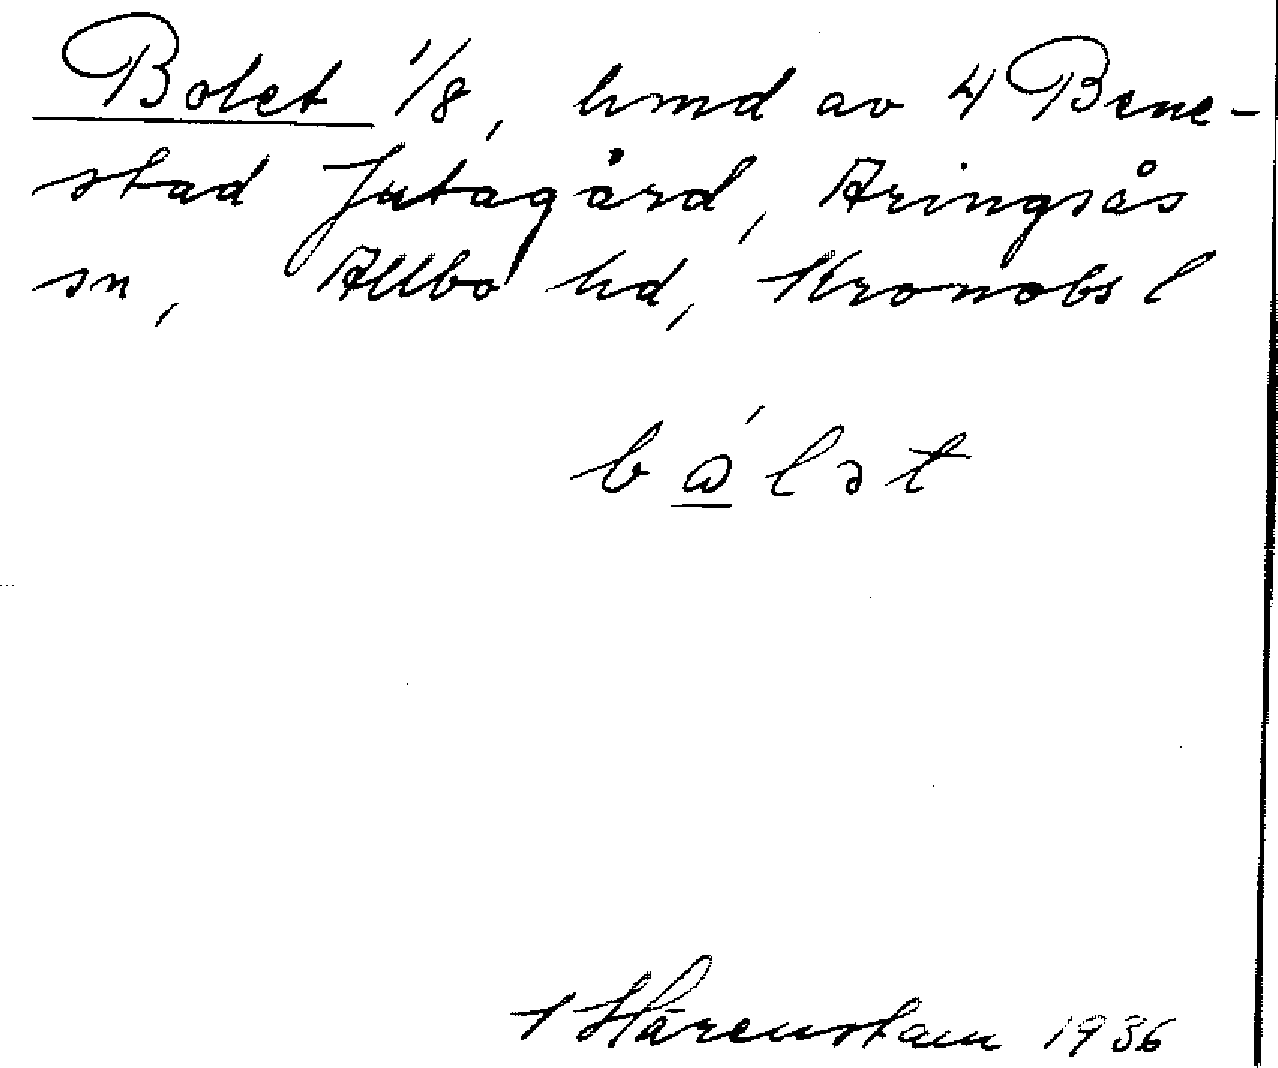 Bolet 1/8, hmd av 4 Bene-
stad Jutagård, Aringsås
sn, Allbo hd, Kronobs l
bålət
Härenstam 1936